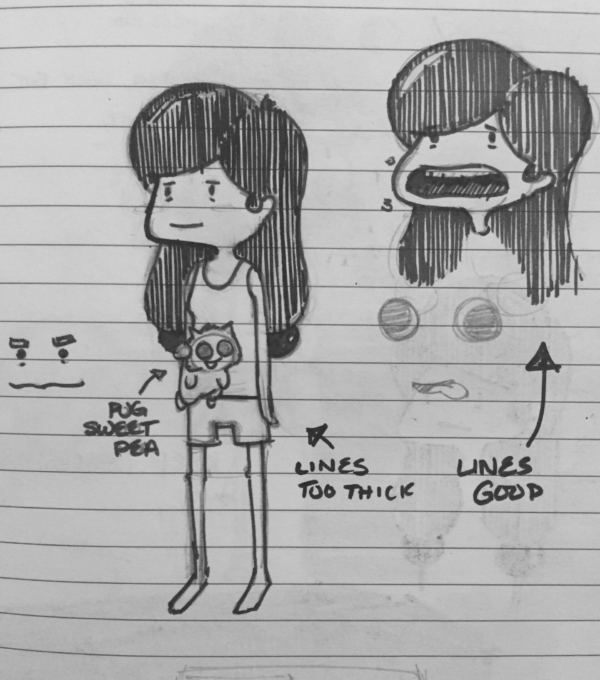 PUG
SWEET
PEA
LINES
TOO THICK
LINES
GOOD